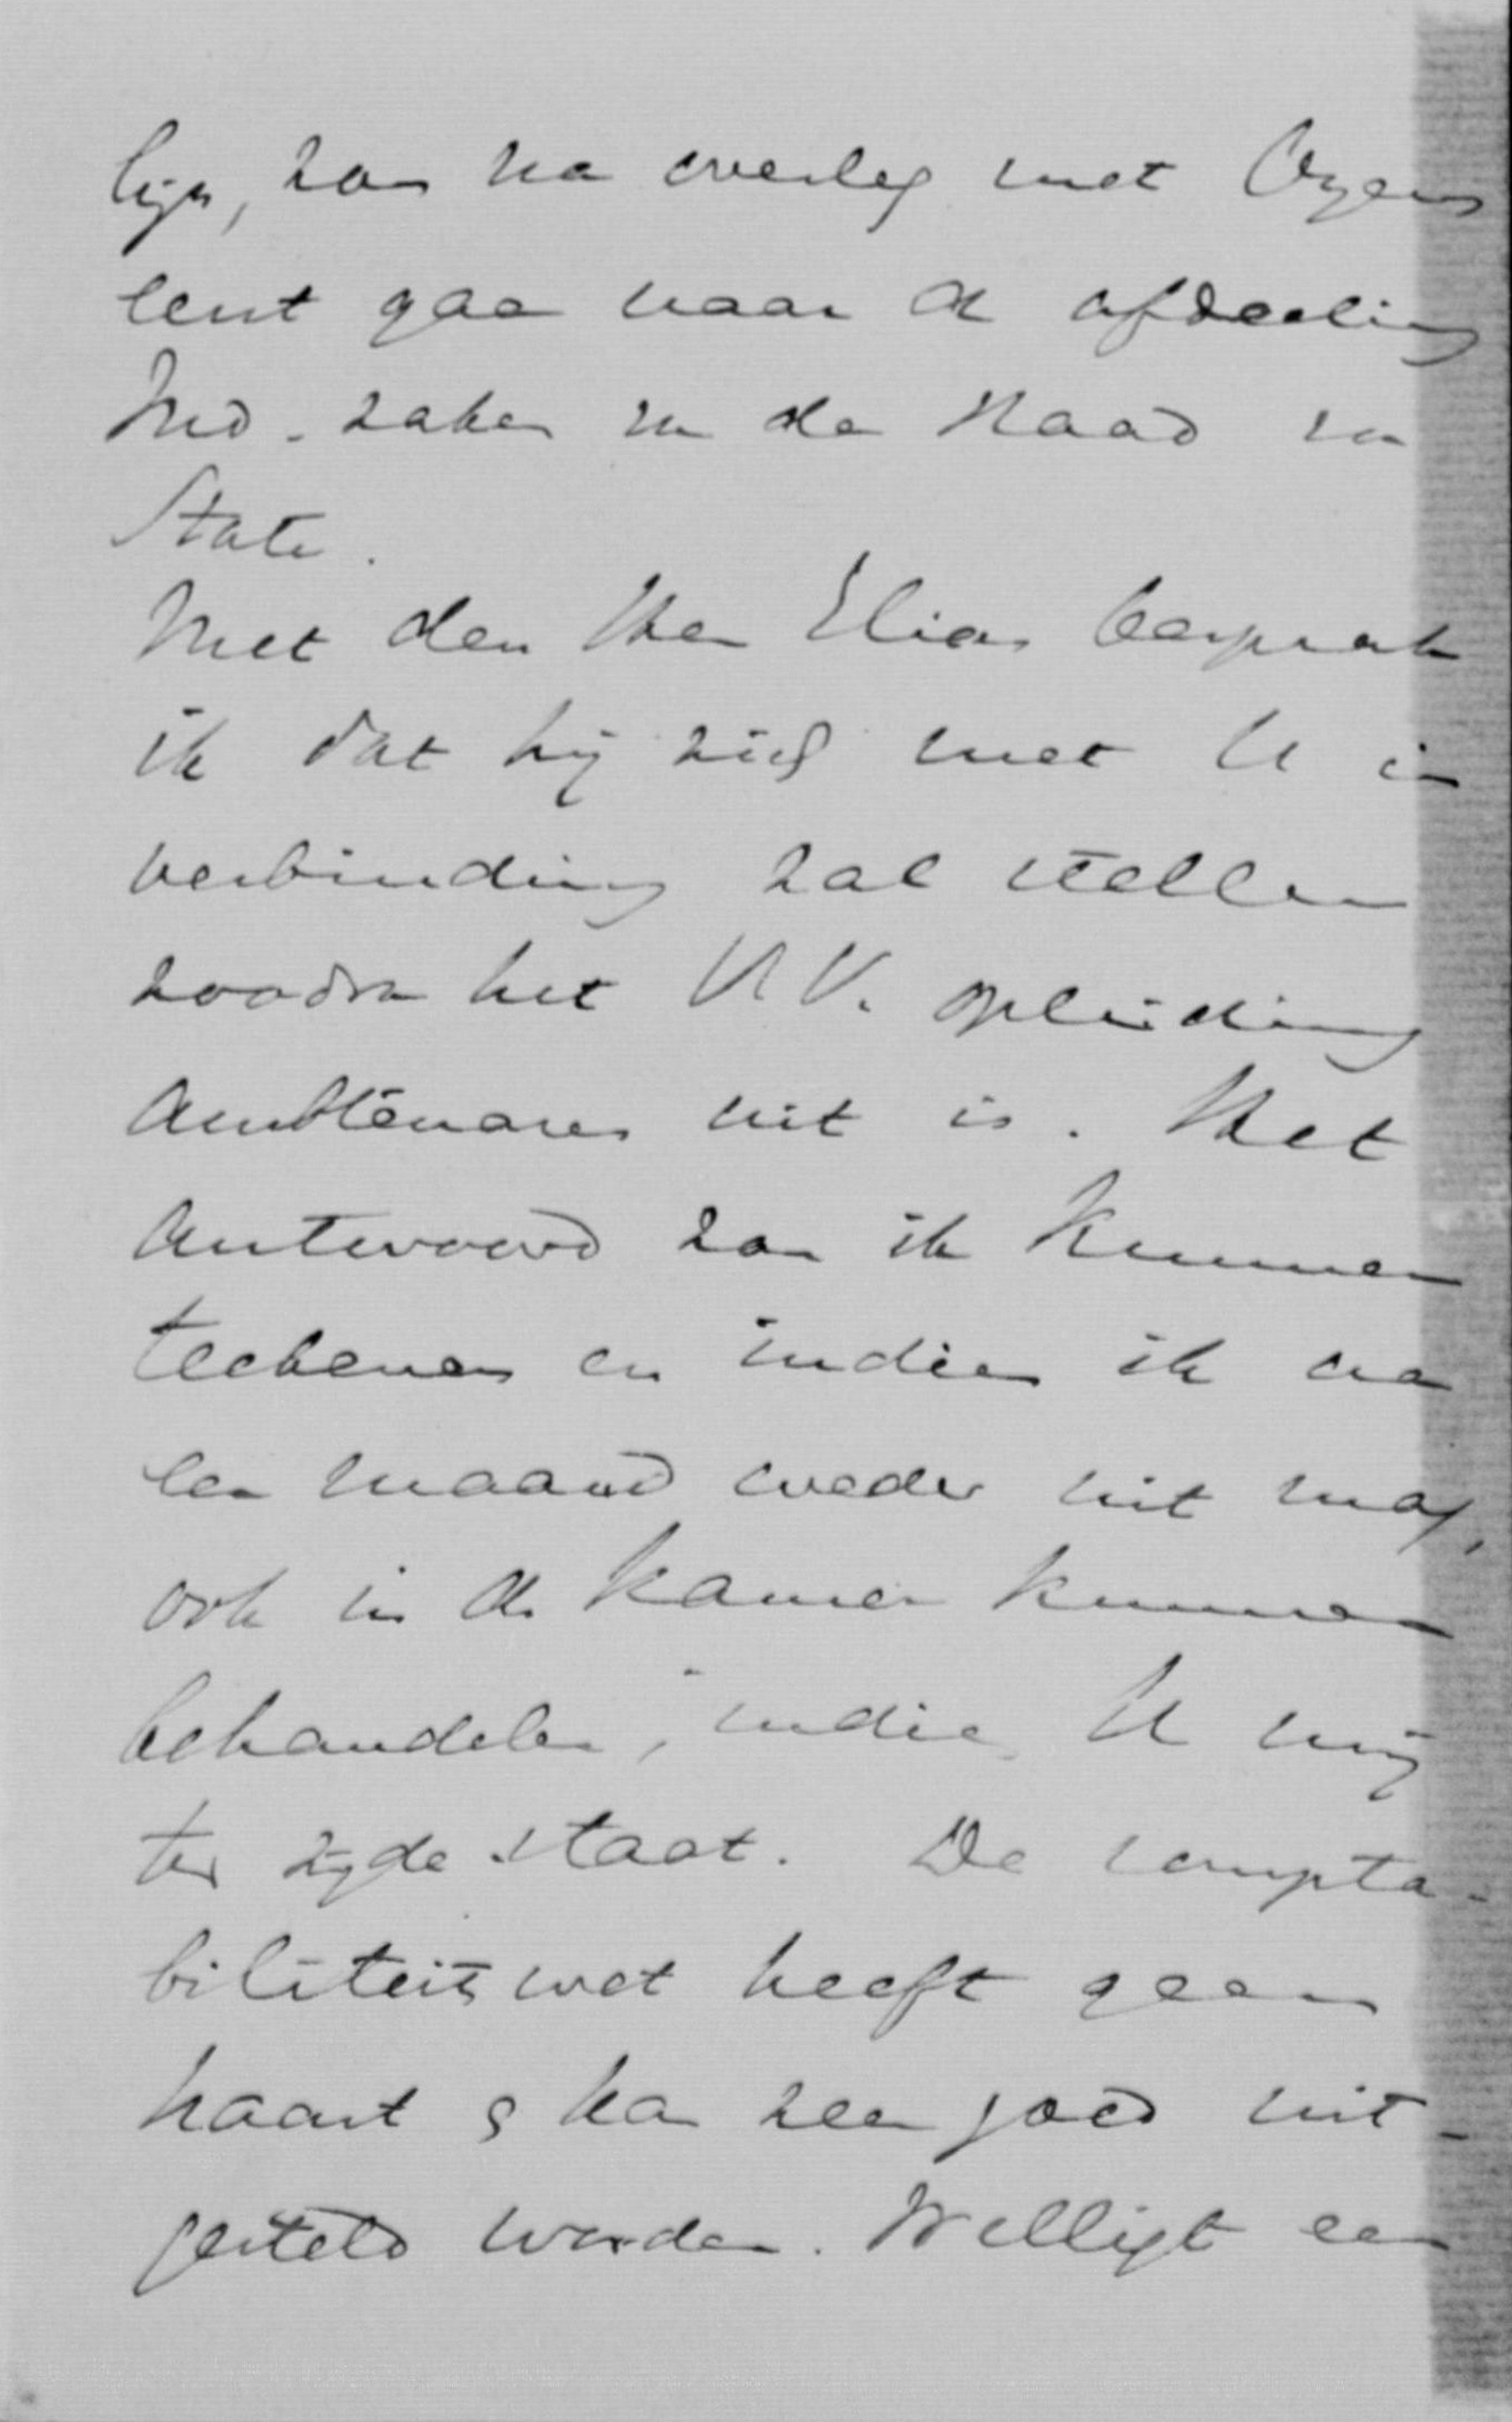 lijn, kan na overleg met
lent gaa naar de afdeeling
Ind. zaken van de Raad van
State.
Met den Heer Elias besprak
ik dat hij zich met U in
verbinding zal stellen
zoodra het V.V. opleiding
Ambtenaren uit is. Het
antwoord zou ik kunnen
teekenen en indien ik na
een maand weder uit mag,
ook in de Kamer kunnen
behandelen, indien U mij
ter zijde staat. De compta-
biliteitswet heeft geen
haast & kan zeer goed uit-
gesteld worden. Welligt een